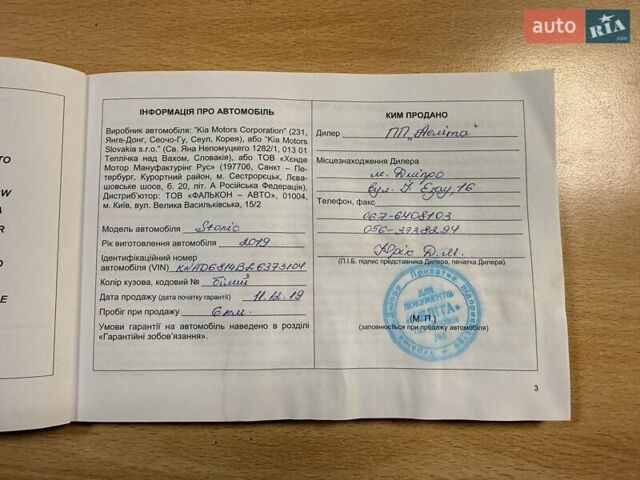 auto RIA.com
TO
W
A
R
S
E
E
ІНФОРМАЦІЯ ПРО АВТОМОБІЛЬ
Виробник автомобіля: "Kia Motors Corporation" (231,
Янге-Донг, Сеочо-Гу, Сеул, Корея), або "Kia Motors
Slovakia s.r.o." (Св. Яна Непомуцкего 1282/1, 013 01
Теплічка над Вахом, Словакія), або ТОВ «Хенде
Мотор Мануфактурінг Рус» (197706, Санкт – Пе-
тербург, Курортний район, м. Сестрорецьк, Лева-
шовське шосе, б. 20, літ. А Російська Федерація),
Дистриб'ютор: ТОВ "ФАЛЬКОН – АВТО", 01004,
м. Київ, вул. Велика Васильківська, 15/2
Модель автомобіля Stonic
Рік виготовлення автомобіля 2019
Ідентифікаційний номер
автомобіля (VIN) KNAD6814BL6373104
Колір кузова, кодовий № білий
Дата продажу (дата початку гарантії) 11.12.19
Пробіг при продажу 6 км.
Умови гарантії на автомобіль наведено в розділі
«Гарантійні зобов'язання».
КИМ ПРОДАНО
Дилер ПП "Аеліта"
Місцезнаходження Дилера
м. Дніпро
вул. 16
Телефон, факс
067-6408103
056-3738294
Юрік Д.М.
(П.І.Б. підпис представника Дилера, печатка Дилера)
ДЛЯ
ДОКУМЕНТІВ
"АЕЛІТА"
№1
(М. П.)
(заповнюється при продажу автомобіля)
3